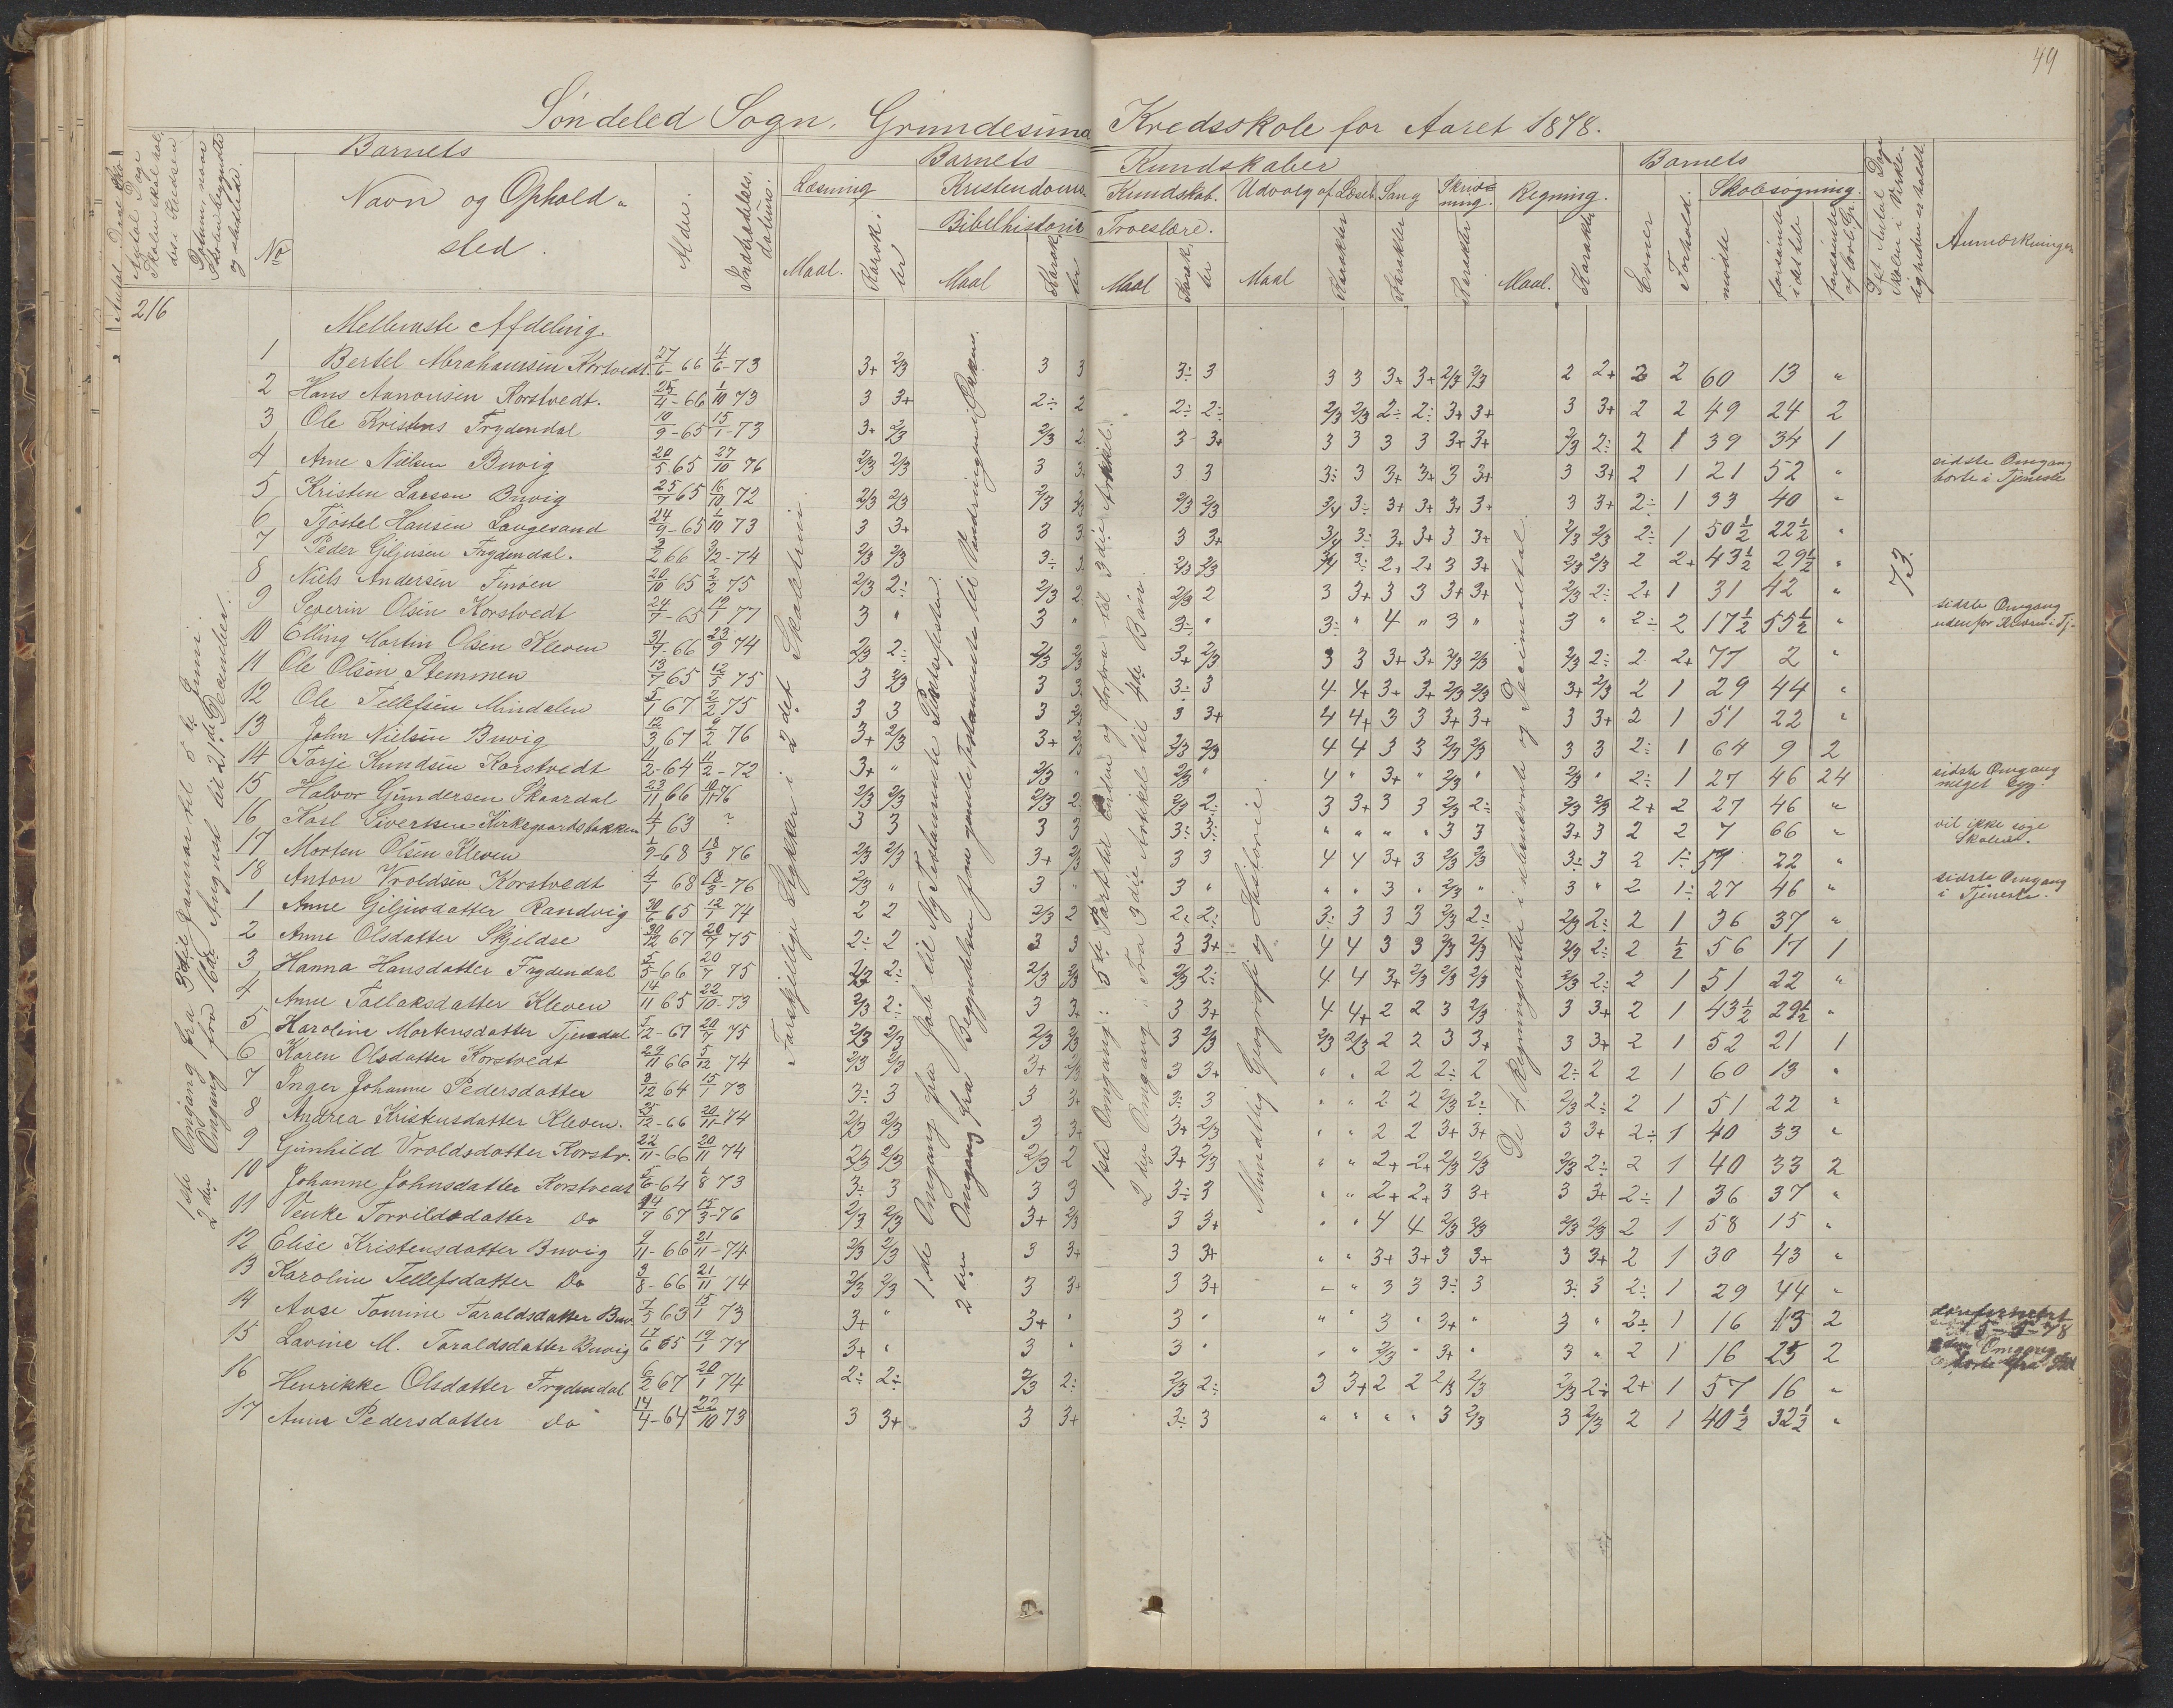 49
Søndeled Sogn. Grundesund Kredsskole for Aaret 1878.
Barnets
Barnets Kundskaber
Barnets
No
Navn og Ophold-
sted.
Alder.
Indtrædelses-
datum.
Læsning
Maal.
Karak-
ter
Kristendoms-
Kundskab.
Bibelhistorie
Maal
Karak-
ter
Troeslære.
Maal
Karak-
ter
Udvalg af Læseb.
Maal
Karakter
Sang
Karakter
Skriv-
ning.
Karakter
Regning.
Maal.
Karakter
Evner
Forhold.
Skolesøgning.
mødte
forsømte
i det hele
forsømte
Anmærkninger
216
73.
1ste Omgang fra 3die Januar til 5te Juni.
2den Omgang fra 16de August til 21de December.
Forskjellige Stykker i 2det Skoletrin
1ste Omgang fra Job til Ny Testamente
2den Omgang fra Begyndelsen
1ste Omgang: 5te Part til Enden og forfra til 3die Artikel.
2den Omgang: Fra 3die Artikel til 4de Bøn.
Mundtlig Geografi og Historie.
De 4 Regningsarter i benævnte og Decimaltal.
Mellemste Afdeling.
1 Bertel Abrahamsen Korstvedt. 27/6-66 4/6-73 3+ 2/3 3 3 3÷ 3 3 3 3+ 3+ 2/3 2/3 2 2+ 2 2 60 13 "
2 Hans Aanonsen Korstvedt. 25/4-66 1/10 73 3 3+ 2÷ 2 2÷ 2÷ 2/3 2/3 2÷ 2÷ 3+ 3+ 3 3+ 2 2 49 24 2
3 Ole Kristens Frydendal 10/9-65 15/1-73 3+ 2/3 2/3 2 3 3+ 3 3 3 3 3+ 3+ 2/3 2÷ 2 1 39 34 1
4 Arne Nielsen Buvig 20/5 65 27/10 76 2/3 2/3 3 3 3 3 3÷ 3 3+ 3+ 3 3+ 3 3+ 2 1 21 52 " sidste Omgang
borte i Tjeneste
5 Kristen Larsen Buvig 25/7 65 16/10 72 2/3 2/3 2/3 2/3 2/3 2/3 3/4 3÷ 3+ 3+ 3+ 3+ 3 3+ 2÷ 1 33 40 "
6 Tjøstel Hansen Langesand 24/9-65 1/10 73 3 3+ 3 3 3 3+ 3/4 3÷ 3+ 3+ 3 3+ 2/3 2/3 2÷ 1 50½ 22½ "
7 Peder Giljusen Frydendal. 3/2 66 3/12-74 2/3 2/3 3÷ 3 2/3 2/3 3/4 3÷ 2+ 2+ 3 3+ 2/3 2/3 2 2+ 43½ 29½ "
8 Niels Andersen Finøen 20/10 65 2/2 75 2/3 2÷ 2/3 2 2/3 2 3 3+ 3 3 3+ 3+ 2/3 2÷ 2+ 1 31 42 "
9 Severin Olsen Korstvedt 24/7-65 19/1 77 3 " 3 " 3÷ " 3÷ " 4 " 3 " 3 " 2÷ 2 17½ 55½ " sidste Omgang
udenfor Kredsen i Tj-
10 Elling Martin Olsen Kleven 31/7-66 23/9 74 2/3 2÷ 2/3 2/3 3+ 2/3 3 3 3+ 3+ 2/3 2/3 2/3 2÷ 2 2+ 77 2 "
11 Ole Olsen Stemmen 13/7 65 12/5 75 3 2/3 3 3 3÷ 3 4 4+ 3+ 3+ 2/3 2/3 3+ 2/3 2 1 29 44 "
12 Ole Tellefsen Mindalen 5/1 67 2/2 75 3 3 3 2/3 3 3+ 4 4+ 3 3 3+ 3+ 3 3+ 2 1 51 22 "
13 John Nielsen Buvig 12/3 67 9/2 76 3+ 2/3 3+ 2/3 2/3 2/3 4 4 3 3 2/3 2/3 3 3 2÷ 1 64 9 2
14 Torje Knudsen Korstvedt 11/2-64 11/2-72 3+ " 2/3 " 2/3 " 4 " 3+ " 2/3 " 2/3 " 2÷ 1 27 46 24 sidste Omgang
meget syg.
15 Halvor Gundersen Skaardal 23/11 66 10/11-76 2/3 2/3 2/3 2 2/3 2÷ 3 3+ 3 3 2/3 2÷ 2/3 2/3 2+ 2 27 46 "
16 Karl Sivertsen Kirkegaardsbakken 4/7 63 ? 3 3 3 3 3÷ 3÷ " " " " 3 3 3+ 3 2 2 7 66 " vil ikke søge
Skolen.
17 Morten Olsen Kleven 1/9-68 18/3 76 2/3 2/3 3+ 2/3 3 3 4 4 3+ 3 2/3 2/3 3÷ 3 2 1÷ 51 22 "
18 Anton Vroldsen Korstvedt 4/1 68 18/3-76 2/3 " 3 " 3 " " " 3 " 2/3 " 3 " 2 1÷ 27 46 " sidste Omgang
i Tjeneste.
1 Anne Giljusdatter Randvig 30/6 65 12/1 74 2 2 2/3 2 2÷ 2÷ 3÷ 3 3 3 2/3 2÷ 2/3 2÷ 2 1 36 37 "
2 Anne Olsdatter Skjeldsø 30/12 67 20/7 75 2÷ 2 3 3 3 3+ 4 4 3 3 2/3 2/3 2/3 2÷ 2 ½ 56 17 1
3 Hanna Hansdatter Frydendal 5/5-66 20/7 75 2/3 2÷ 2/3 2/3 2/3 2÷ 4 4 3+ 2/3 2/3 2/3 2/3 2÷ 2 1 51 22 "
4 Anne Tallaksdatter Kleven 14/11 65 22/10-73 2/3 2÷ 3 3+ 3 3+ 4 4+ 2 2 3 2/3 3 3+ 2 1 43½ 29½ "
5 Karoline Mortensdatter Tjendal 5/12-67 20/7 75 2/3 2/3 2/3 2/3 3 2/3 2/3 2/3 2 2 3 3+ 3 3+ 2 1 52 21 1
6 Karen Olsdatter Korstvedt 29/11 66 5/12 74 2/3 2/3 3+ 2/3 3 3+ " " 2 2 2÷ 2 2÷ 2 2 1 60 13 "
7 Inger Johanne Pedersdatter 3/12 64 15/1 73 3÷ 3 3 3+ 3÷ 3 " " 2 2 2/3 2÷ 2/3 2÷ 2 1 51 22 "
8 Andrea Kristensdatter Kleven. 25/12-66 20/11-74 2/3 2/3 3 3+ 3+ 2/3 " " 2 2 3+ 3+ 3 3+ 2÷ 1 40 33 "
9 Gunhild Vroldsdatter Korstv. 22/11-66 20/11 74 2/3 2/3 2/3 2 3+ 2/3 " " 2+ 2+ 2/3 2/3 2/3 2÷ 2 1 40 33 2
10 Johanne Johnsdatter Korstvedt 5/6-64 1/8 73 3÷ 3 3 3 3÷ 3 " " 2+ 2+ 3 3+ 3 3+ 2÷ 1 36 37 "
11 Venke Torvildsdatter Do 14/7 67 15/3-76 2/3 2/3 3+ 2/3 3 3+ " " 4 4 2/3 2/3 2/3 2/3 2 1 58 15 "
12 Elise Kristensdatter Buvig 9/11-66 21/11-74 2/3 2/3 3 3+ 3 3+ " " 3+ 3+ 3 3+ 3 3+ 2 1 30 43 "
13 Karoline Tellefsdatter Do 3/8-66 21/11 74 2/3 2/3 3 3+ 3 3+ " " 3 3 3÷ 3 3÷ 3 2÷ 1 29 44 "
14 Aase Tomine Taraldsdatter Buv 7/5 63 15/1 73 3+ " 3+ " 3 " " " 3 " 3+ " 3 " 2÷ 1 16 13 2
15 Lavine M. Taraldsdatter Buvig 17/6 65 19/1 77 3+ " 3 " 3 " " " 2/3 " 3+ " 3 " 2 1 16 25 2
16 Henrikke Olsdatter Frydendal 6/2 67 20/1 74 2÷ 2÷ 2/3 2÷ 2/3 2÷ 3 3+ 2 2 2/3 2/3 2/3 2÷ 2+ 1 57 16 "
17 Anne Pedersdatter do 14/4-64 22/10 73 3 3+ 3 3+ 3÷ 3 " " " " 3 2/3 3 2/3 2 1 40½ 32½ "